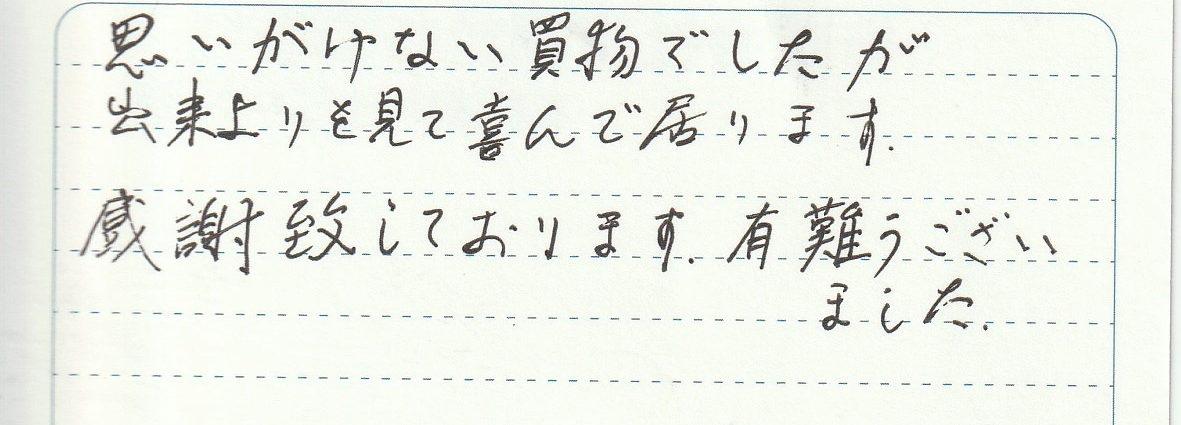 思いがけない買物でしたが
出来よりを見て喜んで居ります.
感謝致しております. 有難うござい
ました.